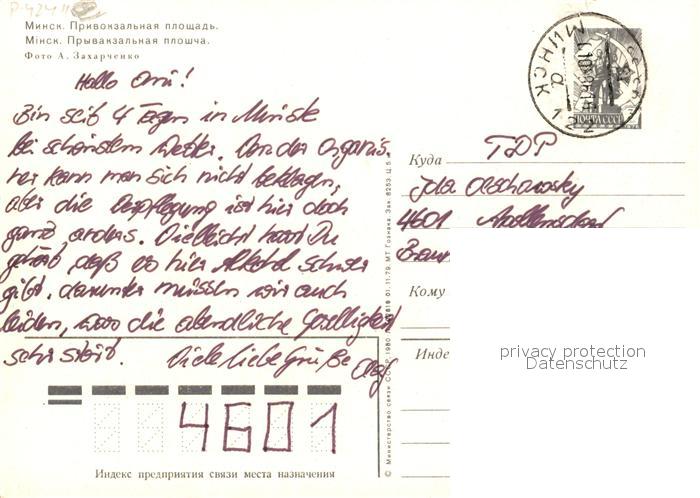 Минск. Привокзальная площадь.
Мінск. Прывакзальная плошча.
Фото А. Захарченко
Hallo Omi!
Bin seit 4 Tagen in Minsk
bei schönstem Wetter. Von der Organis
kann man sich nicht beklagen,
aber die Verpflegung ist hier doch
ganz anders. Vielleicht hast Du
gehört, daß es hier Alkohol schwer
gibt. darunter müssen wir auch
leiden, was die abendliche Geselligkeit
sehr stört. Viele liebe Grüße
Olaf
МИНСК
ПОЧТА СССР
Куда
TDP
4601
Кому
Инде
privacy protection
Datenschutz
4601
Индекс предприятия связи места назначения
© Министерство связи СССР. 1980
01.11.79. МТ Гознака. Зак. 8253. Ц. 5 к.